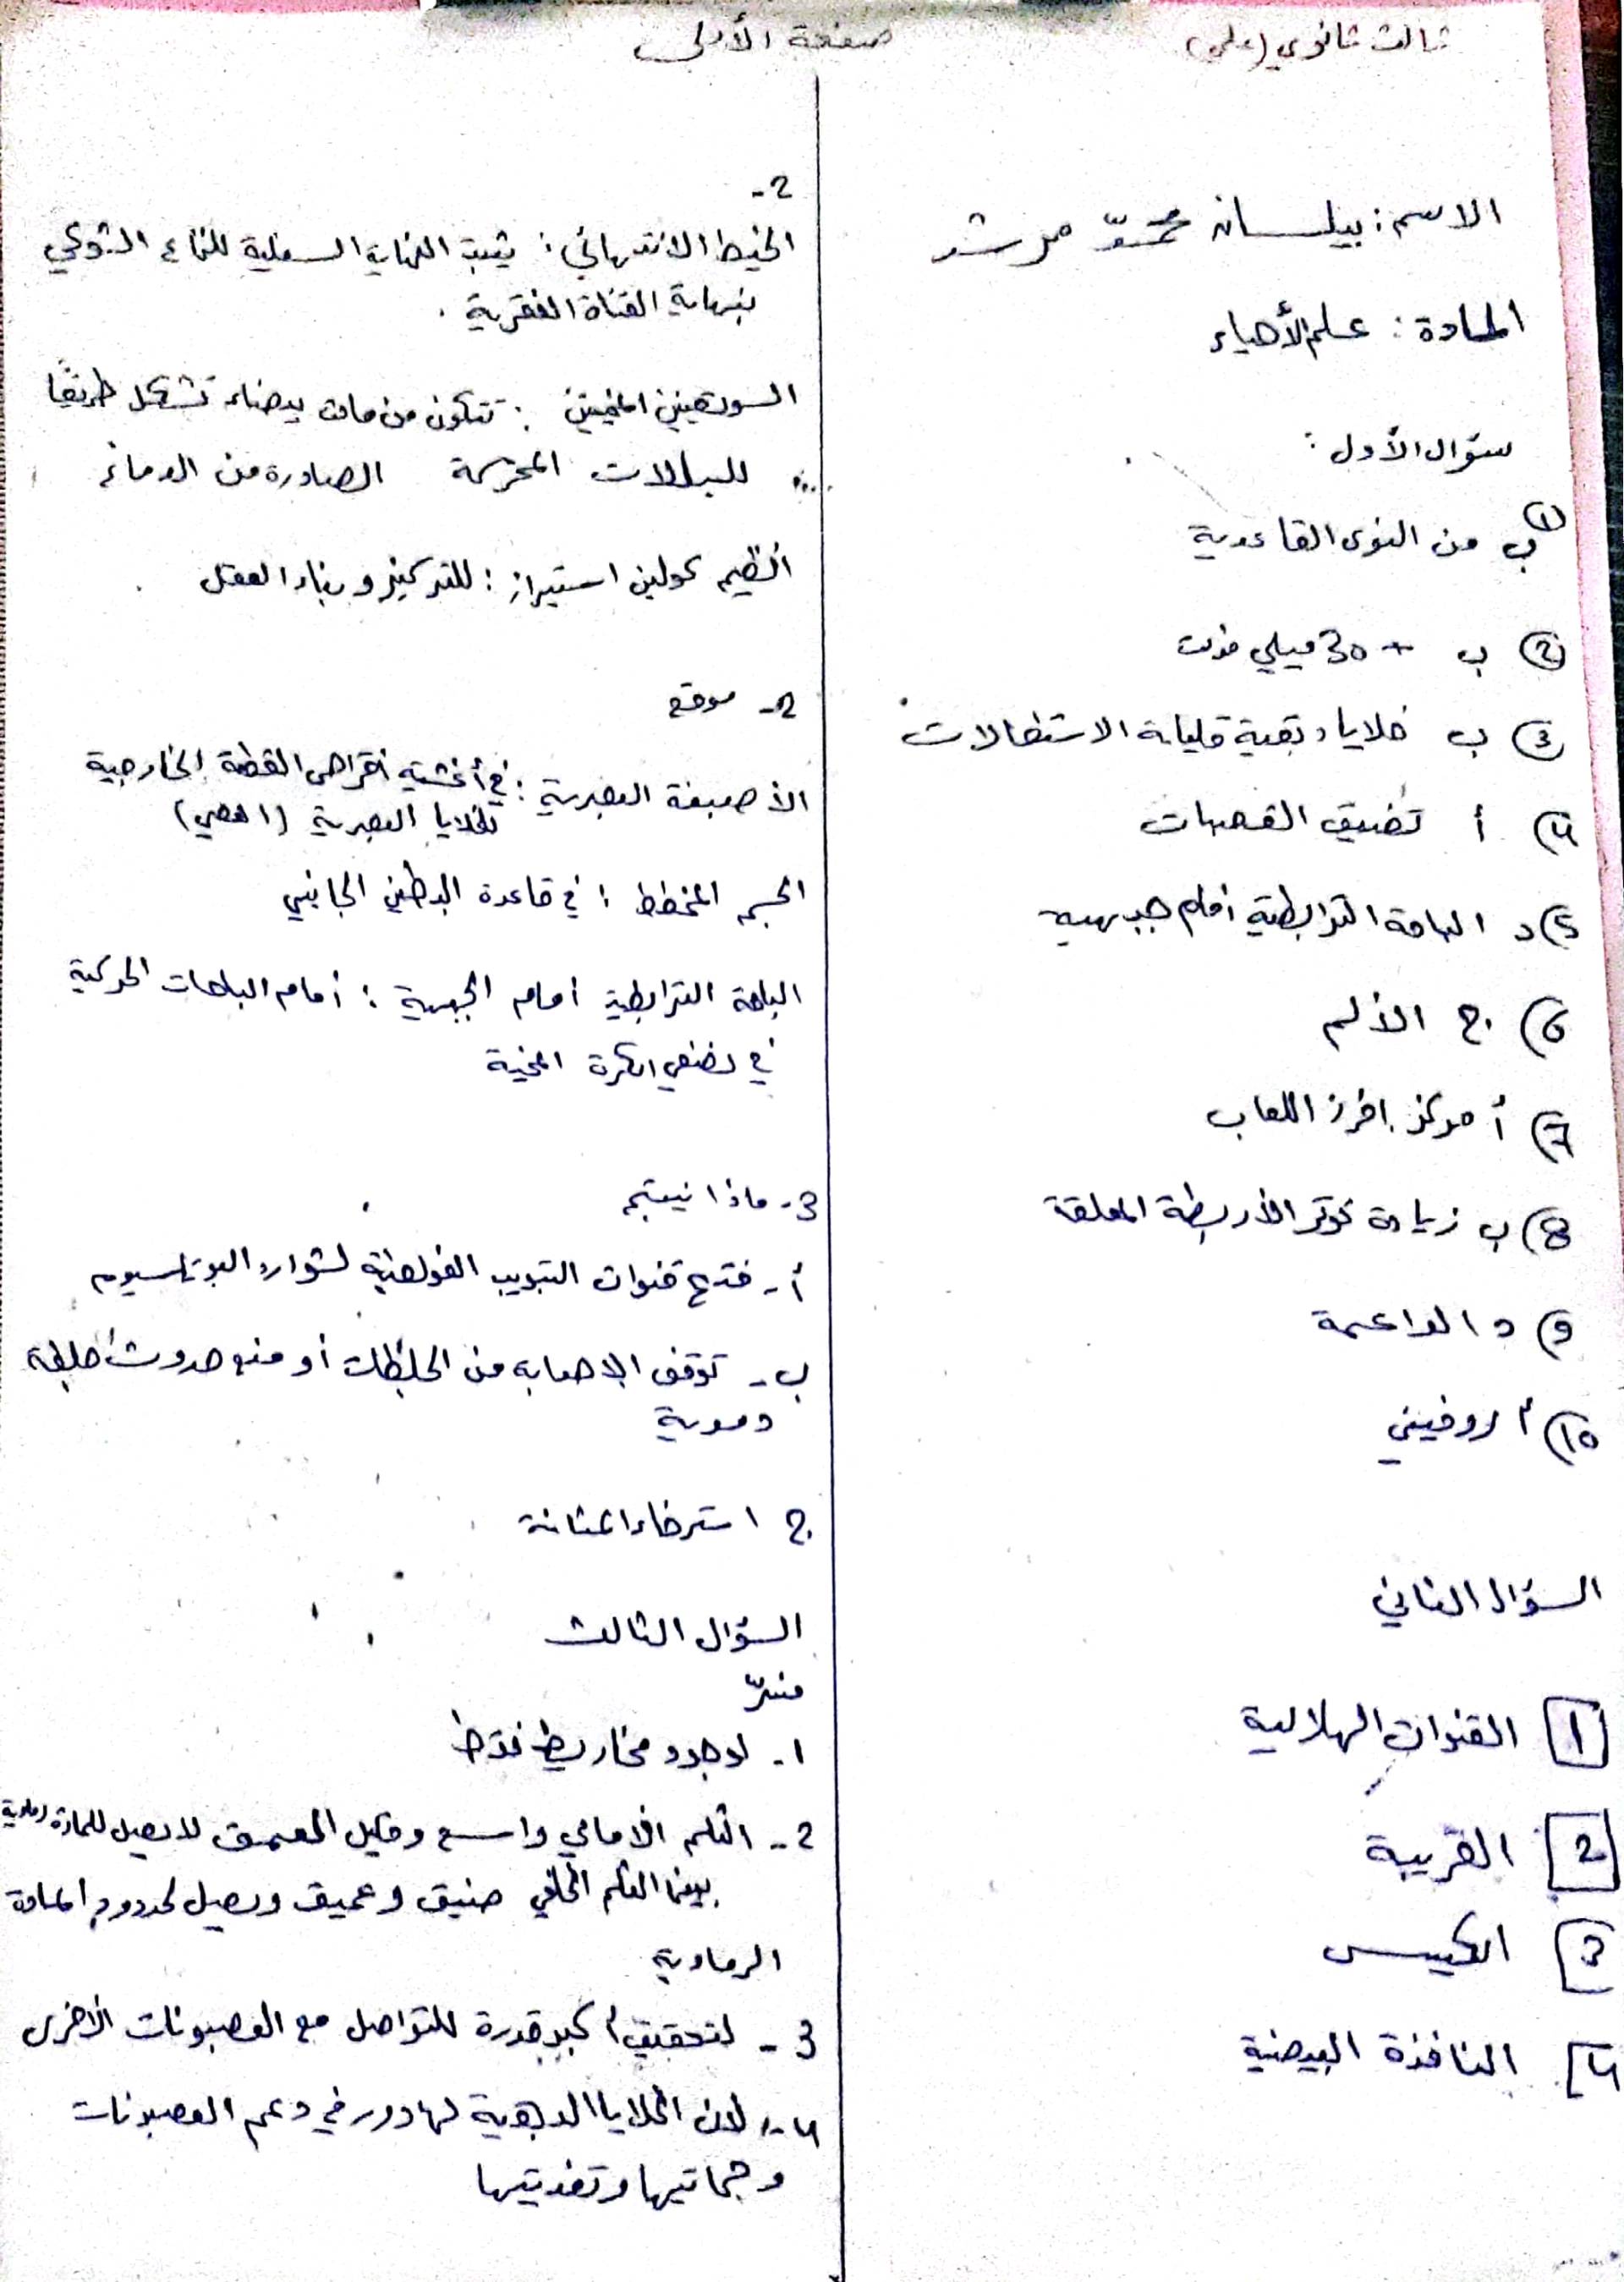 ثالث ثانوي (علمي)
صفحة الأولى
الاسم: بيلسان محمّد مرشد
المادة: علم الأحياء
سؤال الأول:
① ب من النوى القاعدية
② ب + 30 ميلي فولت
③ ب خلايا دبقية قليلة الاستطالات
4) أ تضيق القصبات
5) د الباحة الترابطية أمام جبهية
6) ج الألم
7) أ مركز إفرز اللعاب
8) ب زيادة توتر الأربطة المعلقة
9) د الداعمة
10) أ روفيني
السؤال الثاني
1 القنوات الهلالية
2 القريبة
3 الكييس
4 النافذة البيضية
2-
الخيط الانتهائي: يثبت النهاية السفلية للنخاع الشوكي
بنهاية القناة الفقرية.
السويقتين المخيتين: تتكون من مادة بيضاء تشكل طريقًا
للسيالات المحركة الصادرة من الدماغ
أنظيم كولين استيراز: للتركيز وبناء العقل
2- موقع
الأصبغة البصرية: في أغشية أقراص القطعة الخارجية
للخلايا البصرية (العصي)
الجسم المخطط: في قاعدة البطين الجانبي
الباحة الترابطية أمام الجبهية: أمام الباحات الحركية
في نصفي الكرة المخية
3- ماذا ينتج
أ- فتح قنوات التبويب الفولطية لشوارد البوتاسيوم
ب- توقف الإصابة من الجلطات أو منع حدوث جلطة
دموية
ج استرخاء المثانة
السؤال الثالث
فسّر
1- لوجود مخاريط فقط
2- الثلم الأمامي واسع وقليل العمق لا يصل للمادة رمادية
بينما الثلم الخلفي ضيق وعميق ويصل لحدود المادة
الرمادية
3- لتحقيق أكبر قدرة للتواصل مع العصبونات الأخرى
4- لأن الخلايا الدبقية لها دور في دعم العصبونات
وحمايتها وتغذيتها